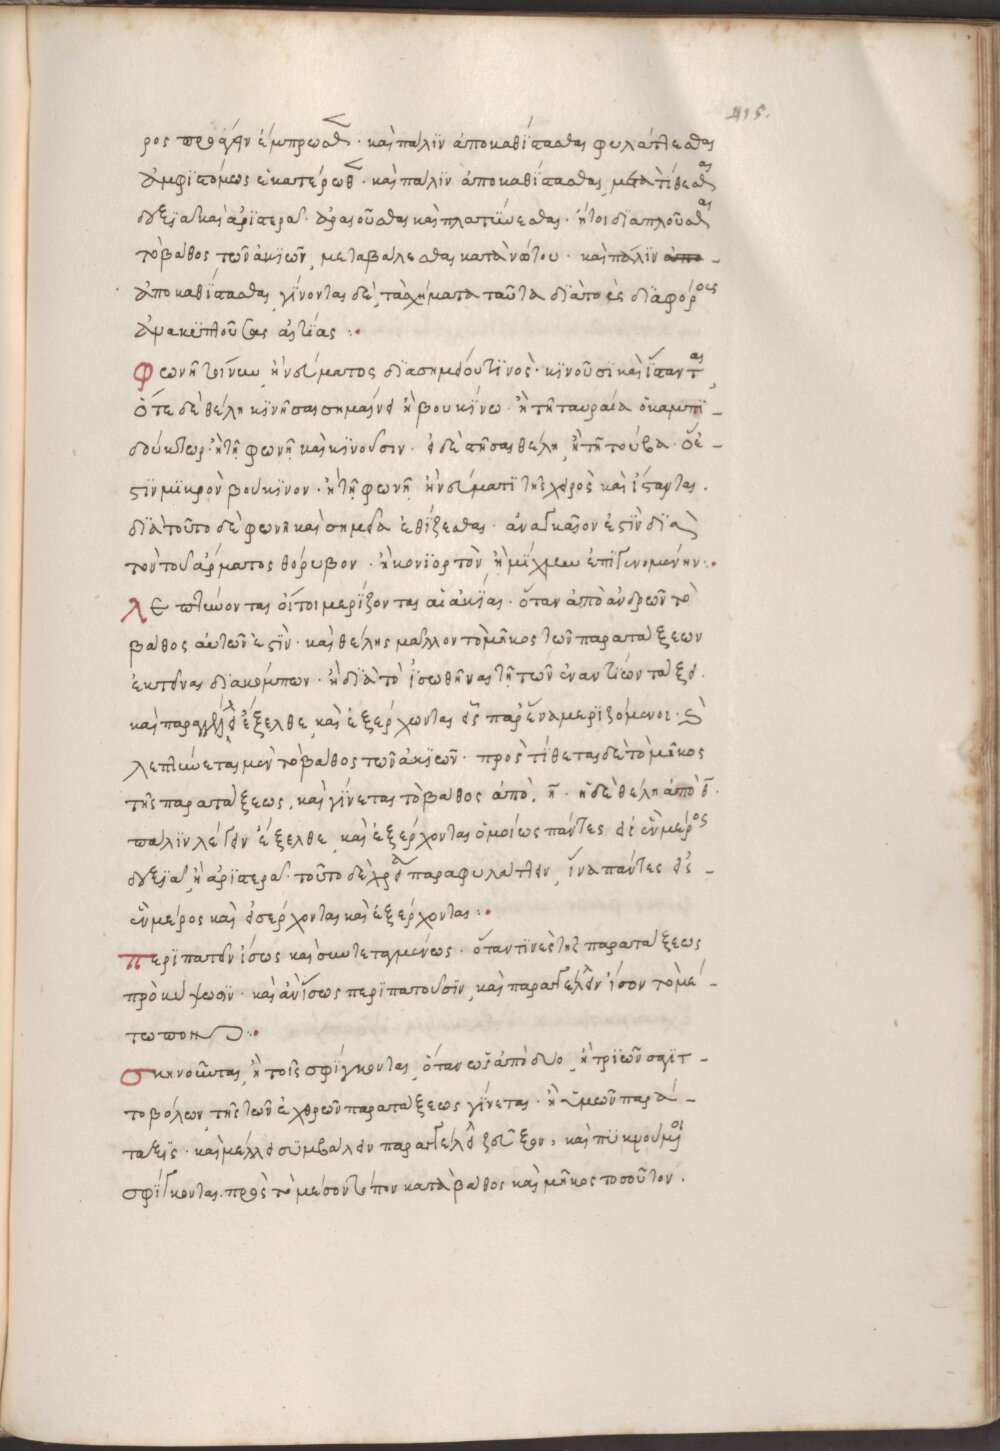 415.
ρος προάγειν έμπρωσθ · καὶ παλϊν ἀποκαθΐστασθαι φυλάττεσθαι
ἀμφϊστόμως ἑκατέρωθ · καὶ παλϊν ἀποκαθΐστασθαι, μετατΐθεσθαι
δεξϊὰ καὶ ἀρϊστερὰ · ἀραιοῦσθαι καὶ πλατϋνεσθαι · ἤτοι δϊαπλοῦσθαι
τὸ βάθος τῶν ἀκϊῶν, μεταβάλεσθαι κατὰ νώτου · καὶ πάλϊν απο -
ἀποκαθΐστασθαι, γίνονται δὲ, τὰ σχήματα ταῦτα δϊὰ τὸ ἐς δϊαφόρους
ἀνακϋπτοῦσας αἰτΐας :·
Φεωνῆ γινέσθω, ἢ νεύματος δϊασημεόυ τϊνὸς · κϊνοῦσϊ καὶ ΐστανται,
ὅτε δὲ θέλη κϊνῆσαι σημαίνει ἢ βουκΐνω · ἢ τῆ ταυραία ὁ καμπϊ -
δούκτωρ · ἢ τῆ φωνῆ καὶ κϊνούσιν · εἰ δὲ στῆσαι θέλη, ἢ τῆ τούβα · ὅ ἐ -
στϊν μϊκρὸν βούκϊνον · ἢ τῆ φωνῆ · ἢ νεύματϊ τῆς χειρὸς καὶ ίστανται ·
δϊὰ τοῦτο δὲ φωνῆ καὶ σημεία ἐθΐζεσθαι · ἀναγκαῖον ἐστϊν δϊὰ
τὸν τοῦ ἄρματος θόρυβον · ἢ κονϊορτὸν ἢ μΐχλην ἐπιγινομένην :·
λεπτύνονται οἵτοι μερΐζονται αἱ ἀκΐαι · ὅταν ἀπὸ ἀνδρῶν τὸ
βάθος αὐτῶν ἐστϊν · καὶ θέλης μᾶλλον τὸ μῆκος τῶν παρατάξεων
ἐκτεῖναι δϊὰ κόμπων · ἢ δϊὰ τὸ ἰσωθῆναι τῆ τῶν ἐναντϊέων τάξει ·
καὶ παραγγέλλει ἔξελθε, καὶ ἐξέρχωνται εἷς παρ' ἕνα μερϊζόμενοι · καὶ
λεπτύνεται μὲν τὸ βάθος τῶν ἀκϊῶν · προστΐθεται δὲ τὸ μῆκος
τῆς παρατάξεως, καὶ γΐνεται τὸ βάθος ἀπὸ. η̄ · εἰ δὲ θέλη ἀπὸ δ̄ ·
πάλϊν λέγειν έξελθε, καὶ ἐξέρχονται ὁμοίως πάντες εἰς ἓν μέρος
δεξϊὰ, ἢ ἀρϊστερὰ · τοῦτο δὲ χρὴ παραφυλάττειν, ΐνα πάντες εἰς -
ἓν μέρος καὶ εἰσέρχονται καὶ ἐξέρχονται :·
περϊπατεῖν ίσως καὶ συντεταγμένως · ὅταν τϊνὲς τῆς παρατάξεως
προκύψωσϊν · καὶ ἀνΐσως περϊπατούσϊν, καὶ παραγγέλλειν ίσον τὸ μέ -
τωπον :·
σκηνοῦται, ἤτοι σφίγκονται, ὅταν ὡς ἀπὸ δύο, ἢ τρϊῶν σαγϊτ -
τοβόλων, τῆς τῶν ἐχθρῶν παρατάξεως γίνεται · ἡ ὑμῶν παρά -
ταξϊς · καὶ μέλλει συμβάλειν παραγγέλλει ζοῦγξον, καὶ πϋκνούμενοι
σφΐγκονται. πρὸς τὸ μέσον τόπον κατὰ βάθος καὶ μῆκος τοσοῦτον ·